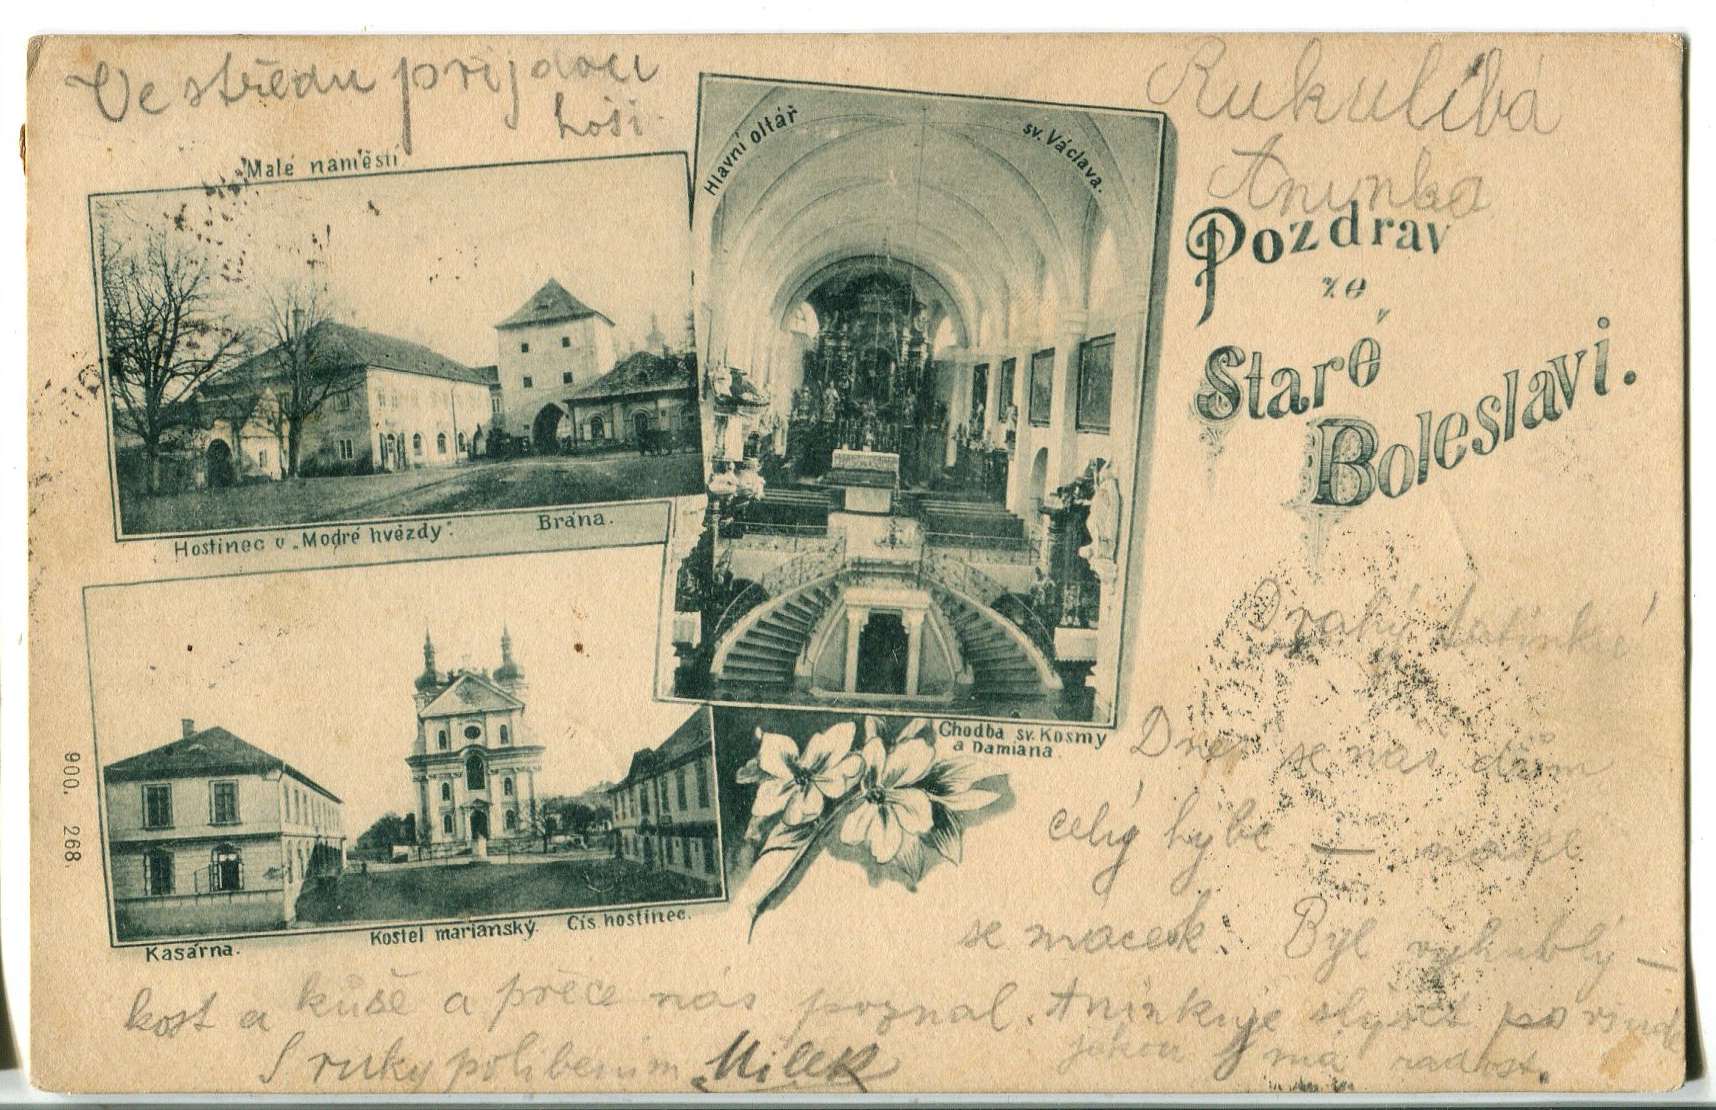 Ve středu přijdou
hoši.
Rukulíbá
Aninka
Malé náměstí
Hlavní oltář
sv. Václava.
Pozdrav
ze
Staré
Boleslavi.
Hostinec u „Modré hvézdy".
Brána.
Chodba sv. Kosmy
a Damiana.
Kasárna.
Kostel marianský.
Cís hostinec.
900. 268.
Drahý tatínku
Dnes se nás dům
celý hýbe — 
se macek. Byl vyhublý —
kost a kůše a přece nás poznal. Aninku je slyšet
jakou má radost.
S ruky políbením Milek